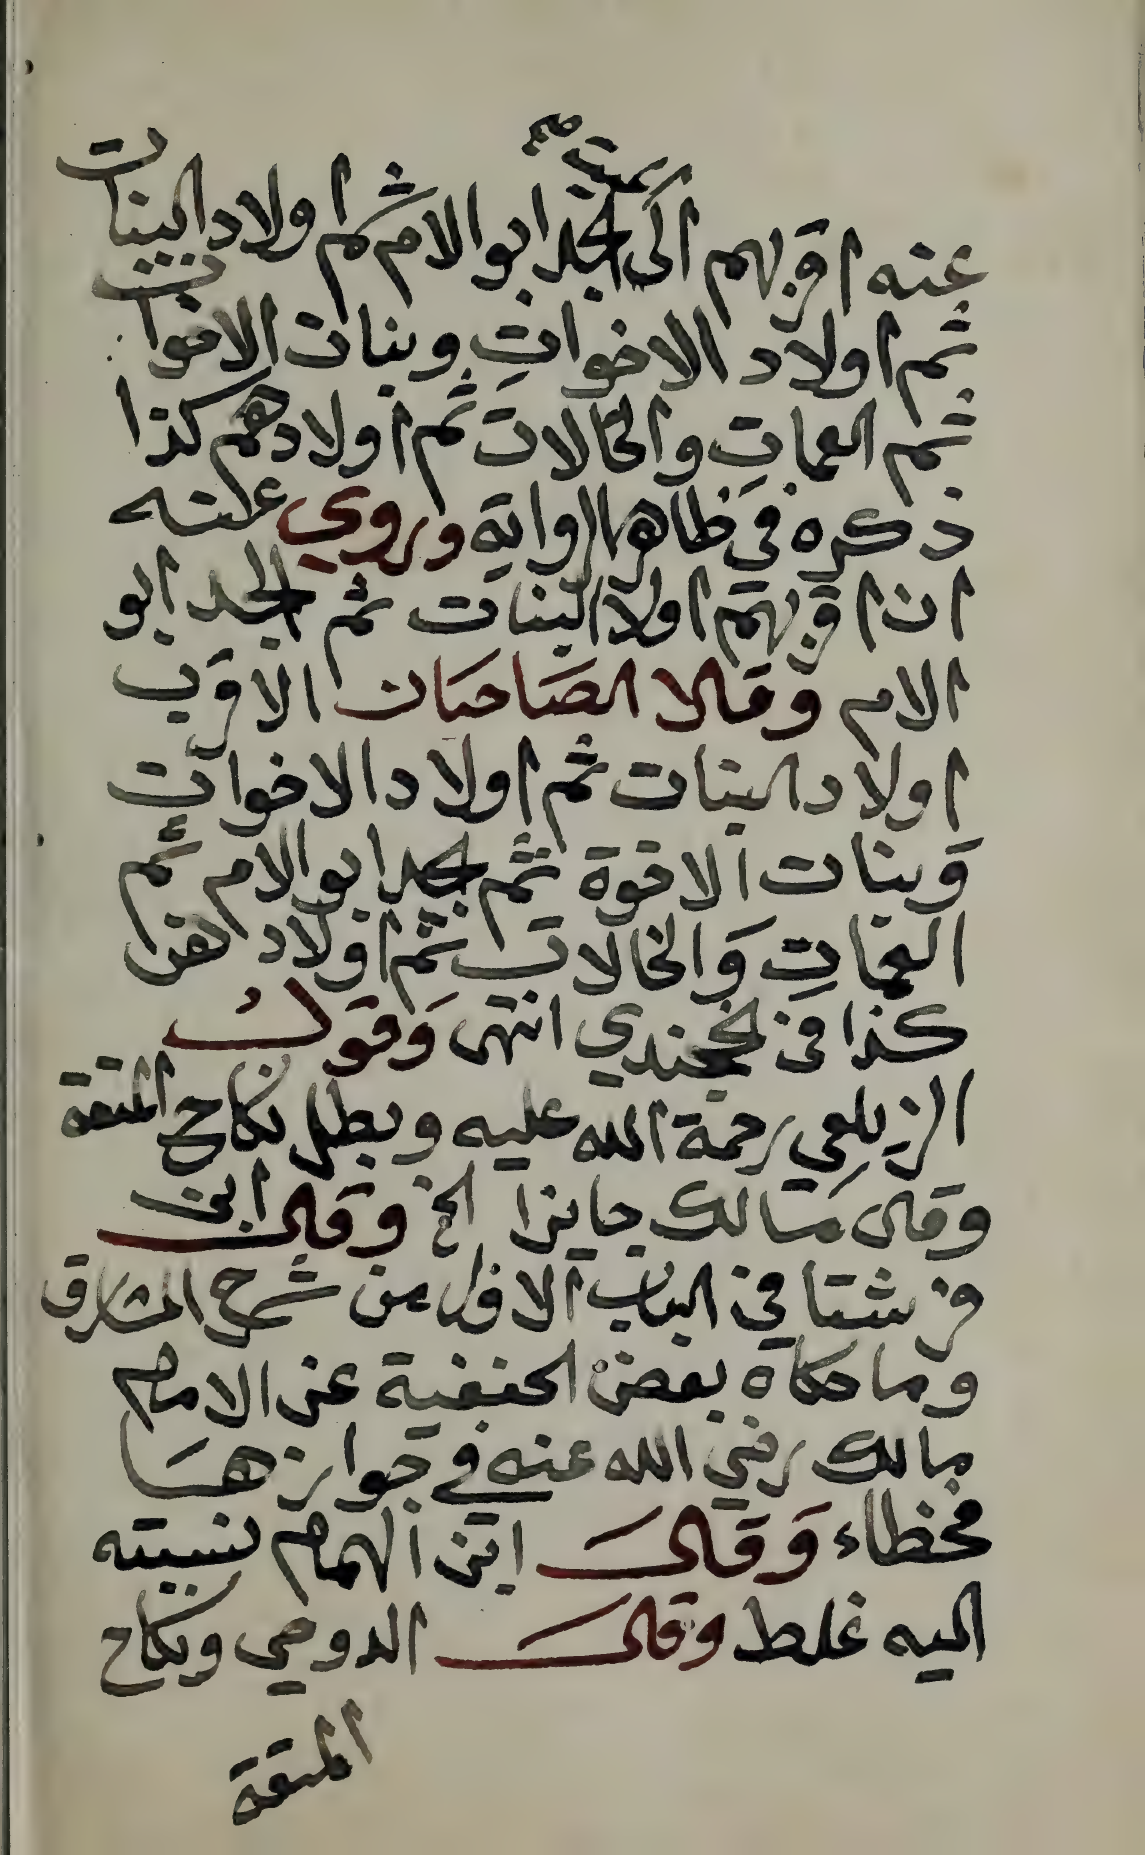 عنه اقربهم الى الميت صح الجد ابو الام ثم اولاد البنات
ثم اولاد الاخوات وبنات الاخوات
ثم العمات والخالات ثم اولادهم كذا
ذكره في ظاهر الرواية وروي عنه
ان اقربهم اولاد البنات ثم الجد ابو
الام وقالا الصاحبان الاقرب
اولاد البنات ثم اولاد الاخوات
وبنات الاخوة ثم الجد ابو الام ثم
العمات والخالات ثم اولادهن
كذا في الخجندي انتهى وقول
الزيلعي رحمة الله عليه وبطل نكاح المتعة
وقال مالك جايزا الخ وقال ابن
فرشتا في الباب الاول من شرح المشارق
وما حكاه بعض الحنفية عن الامام
مالك رضي الله عنه في جوازها
فخطاء وقال ابن الهمام نسبته
اليه غلط وقال الدومي ونكاح
المتعة